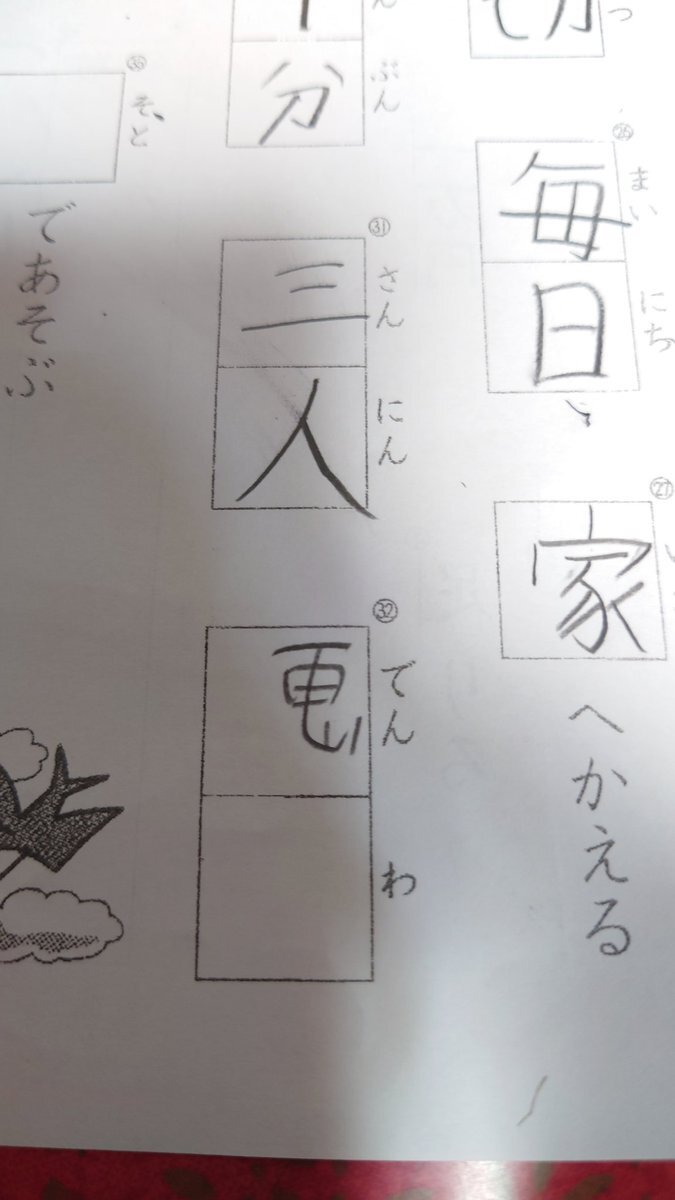 ㉖
まいにち
毎日
㉗
家へかえる
ぷん
分
㉛
さんにん
三人
㉜
でんわ
そと
であそぶ